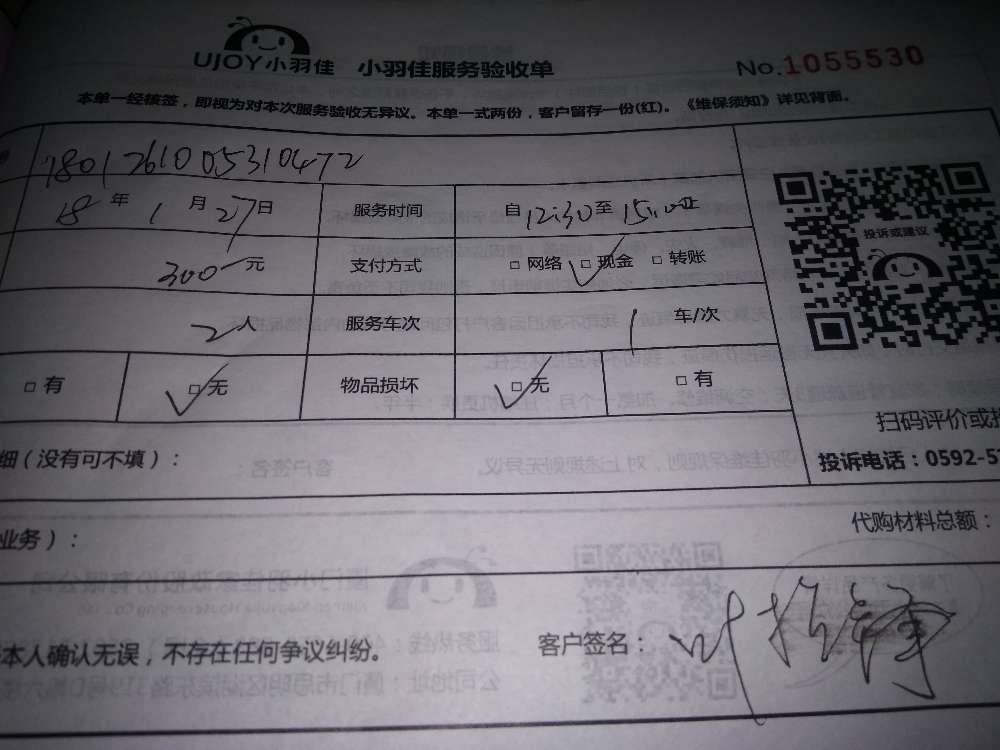 UJOY小羽佳 小羽佳服务验收单 No.1055530
本单一经核签，即视为对本次服务验收无异议。本单一式两份，客户留存一份(红)。《维保须知》详见背面。
1801261005310472
18年1月27日 服务时间 自12:30至15:10止
300元 支付方式 □网络 □现金 □转账
2人 服务车次 1车/次
□有 □无 物品损坏 □无 □有
投诉或建议
扫码评价或
细（没有可不填）： 投诉电话：0592-5
业务）： 代购材料总额：
本人确认无误，不存在任何争议纠纷。 客户签名：